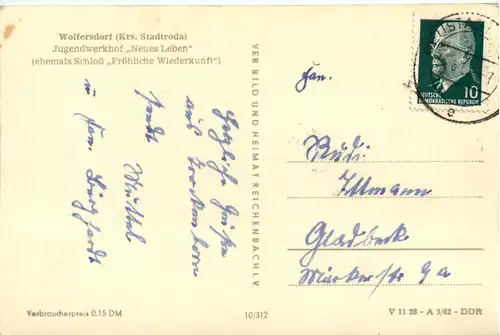 Wolfersdorf (Krs. Stadtroda)
Jugendwerkhof „Neues Leben“
(ehemals Schloß „Fröhliche Wiederkunft“)
Herzliche Grüße
aus Trockenborn
sendet
u. Fam. Burghardt
VEB BILD UND HEIMAT REICHENBACH I. V.
10
DEUTSCHE
DEMOKRATISCHE REPUBLIK
Fam.
Rudi
Ittmann
Gladbeck
Märkerstr 9a
Verbraucherpreis 0.15 DM
10/312
V 11 28 - A 3/62 - DDR